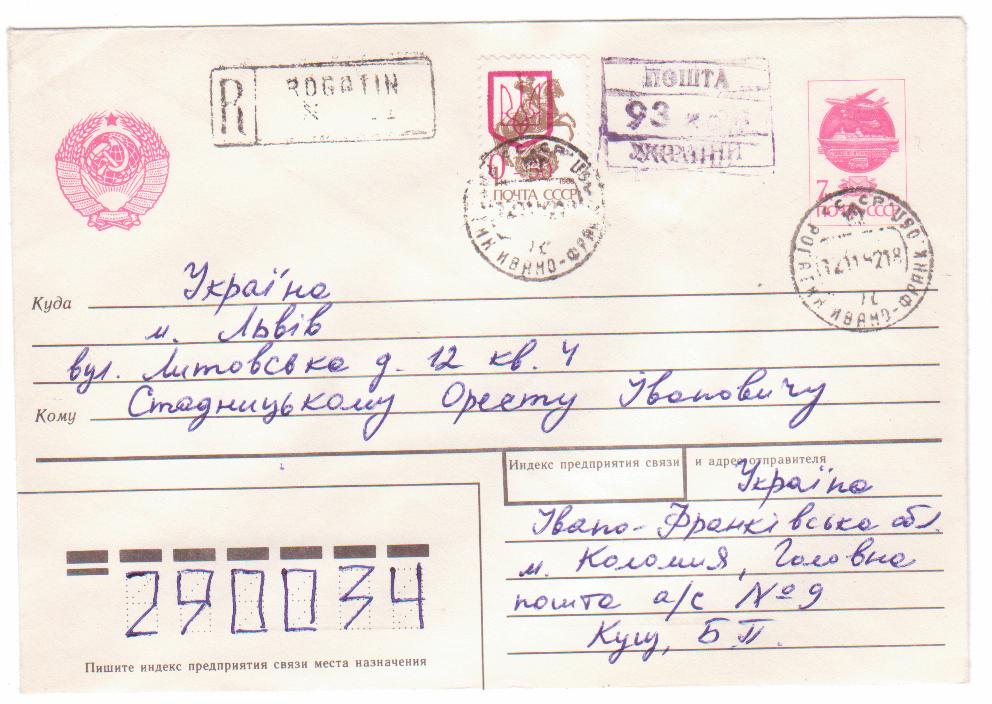 R ROGATIN
N
ПОШТА
93 коп
УКРАЇНИ
0 50
1988
ПОЧТА СССР
7
ПОЧТА СССР
СССР
ИВАНО-ФРАНК
РОГАТИН ИВАНО-ФРАНК. ОБЛ
СССР
Куда Україна
м. Львів
вул. Литовська д. 12 кв. 4
Кому Стадницькому Оресту Івановичу
Индекс предприятия связи и адрес отправителя
Україна
Івано-Франківська обл.
м. Коломия, Головна
пошта а/с №9
Кущ, Б П.
290034
Пишите индекс предприятия связи места назначения